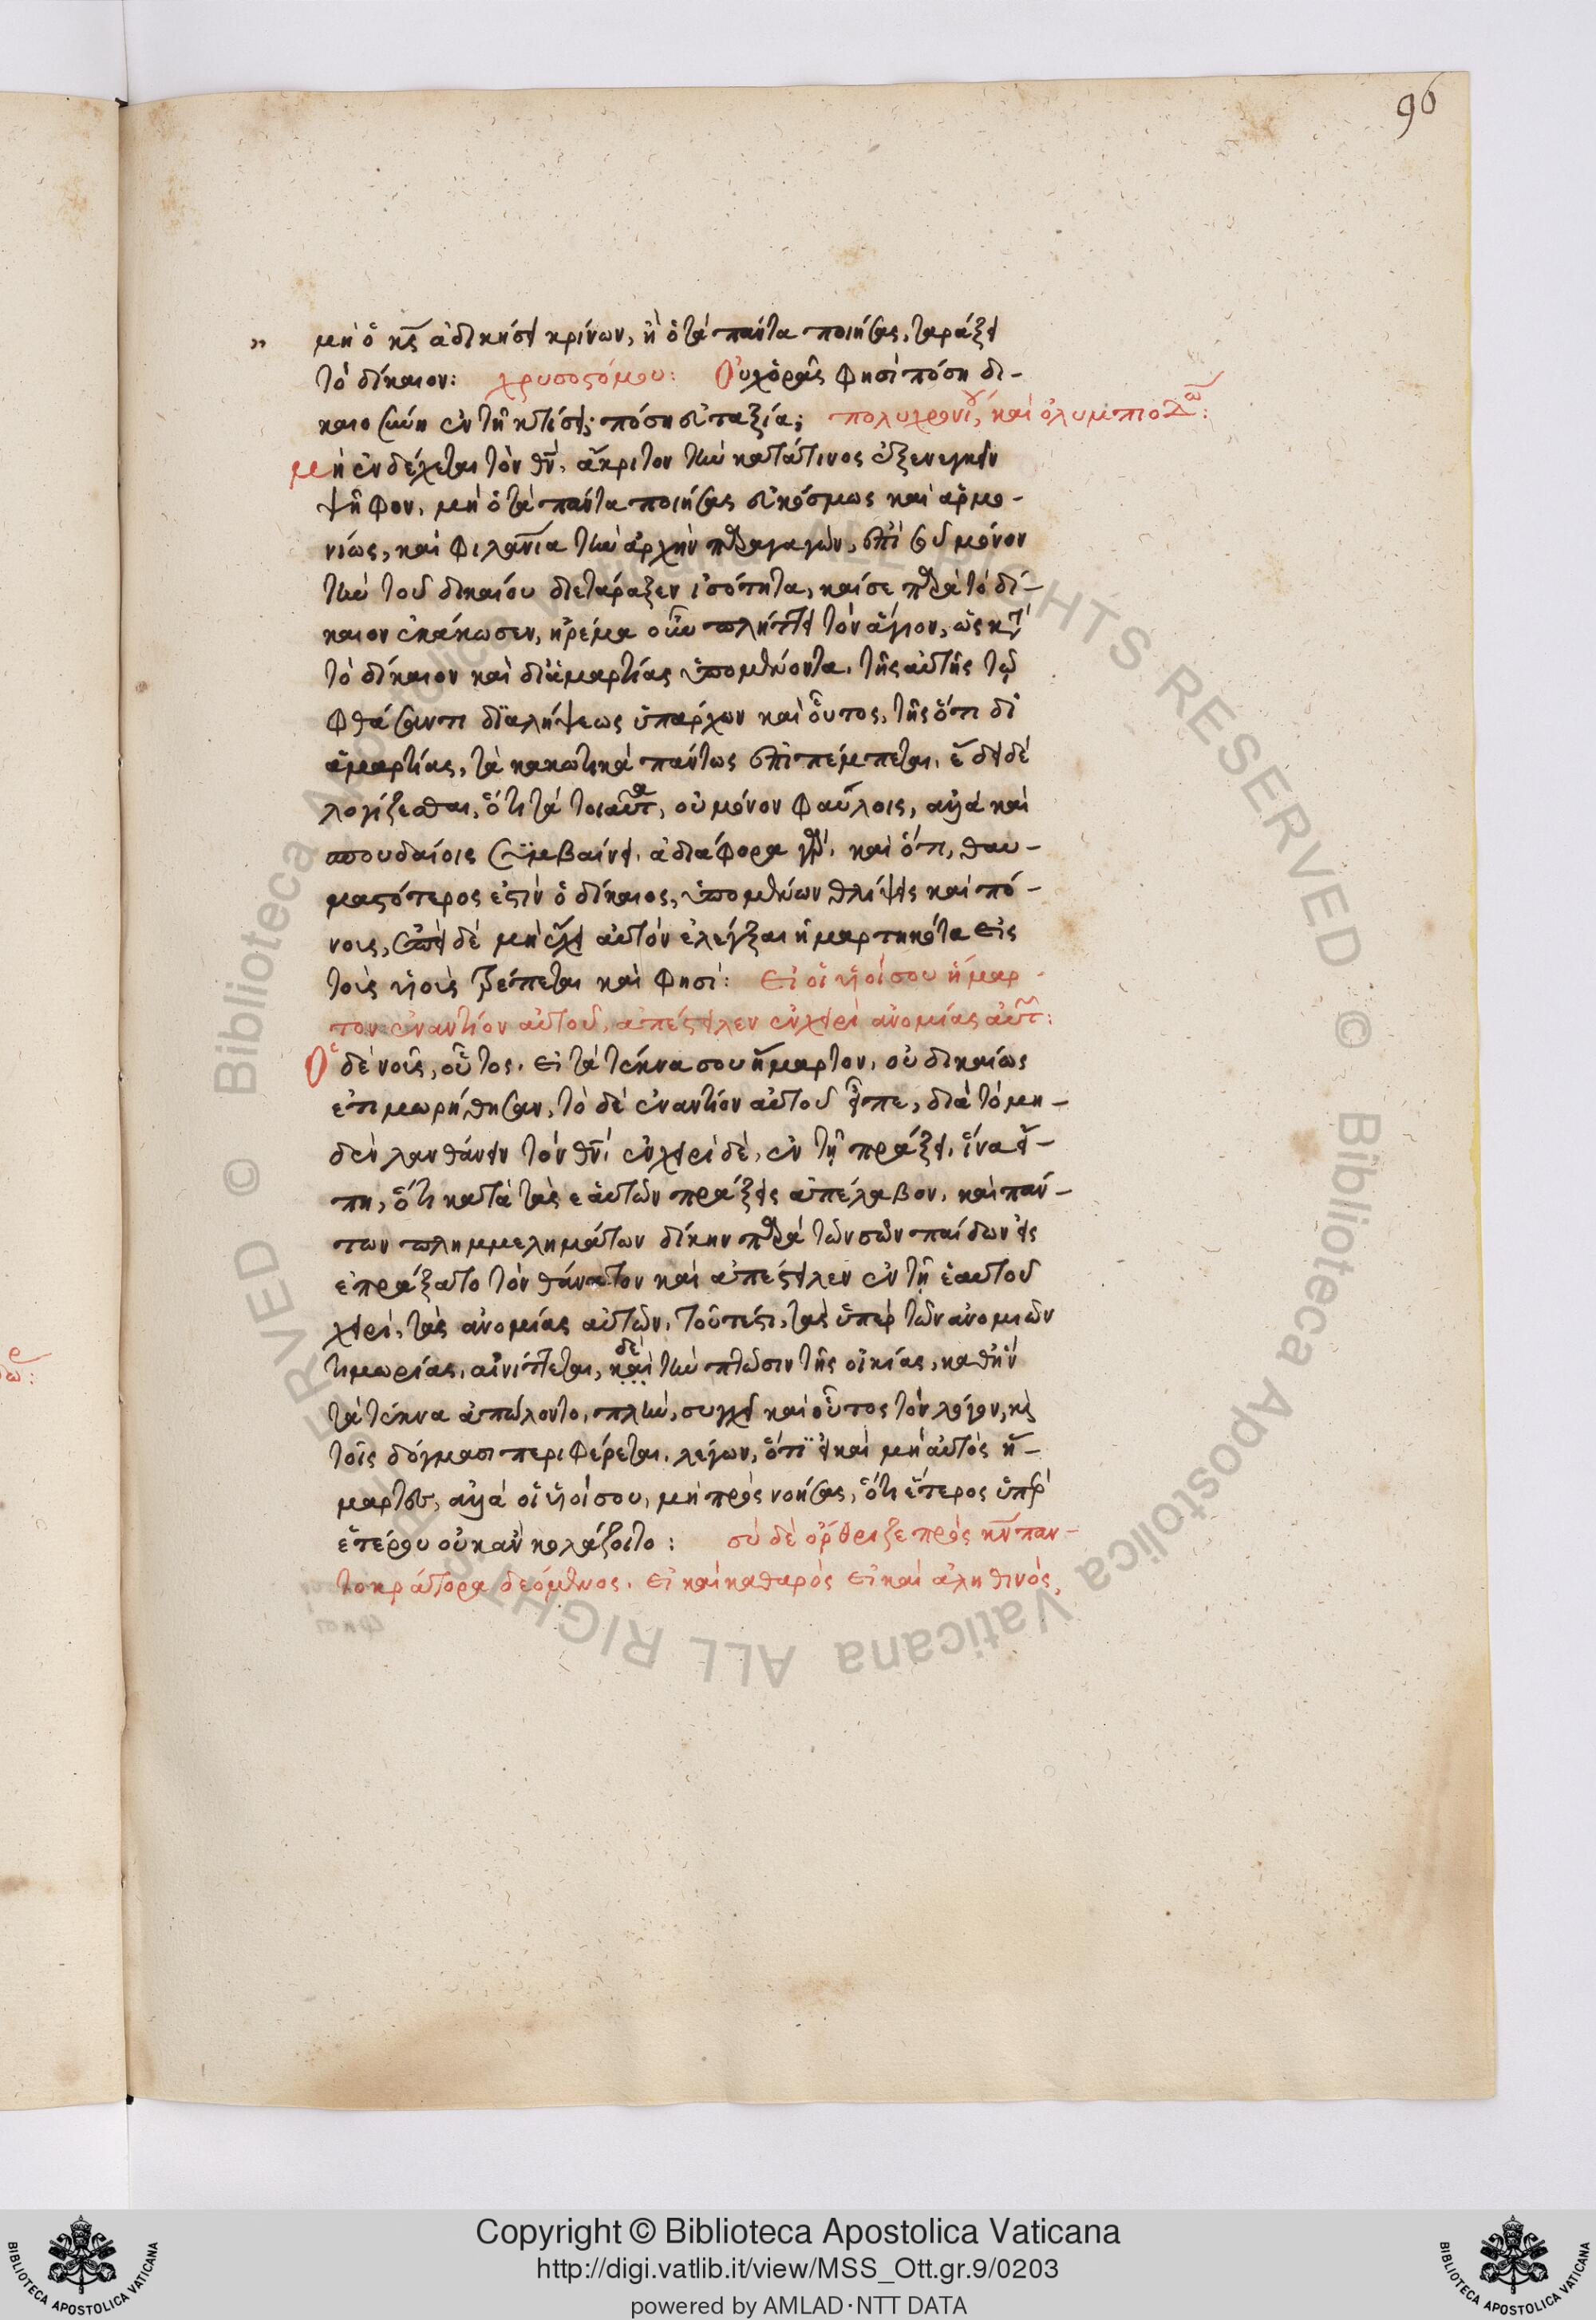 96
„ μὴ ὁ κς ἀδικήσει κρίνων, ἢ ὁ τὰ πάντα ποιήσας, ταράξει
τὸ δίκαιον: χρυσοστόμου: Οὐχ ὁρᾶς φησὶ πόση δι-
καιοσύνη ἐν τῇ κτίσει; πόση εὐταξία; πολυχρονίου, καὶ ὀλυμπιοδώ:
μὴ ἐνδέχεται τὸν θν, ἄκριτον τὴν κατά τινος ἐξενεγκεῖν
ψῆφον, μὴ ὁ τὰ πάντα ποιήσας εὐκόσμως καὶ ἁρμο-
νίως, καὶ φιλανία τὴν ἀρχὴν παραγαγὼν, ἐπὶ σοῦ μόνον
τὴν τοῦ δικαίου διετάραξεν ἰσότητα, καί σε παρὰ τὸ δί-
καιον ἐκάκωσεν, ἠρέμα οὖν πλήττει τὸν ἅγιον, ὡς κατὰ
τὸ δίκαιον καὶ δι' ἁμαρτίας ὑπομένοντα. τῆς αὐτῆς τῷ
φθάσαντι διαλήψεως ὑπάρχων καὶ οὗτος, τῆς ὅτι δι'
ἁμαρτίας, τὰ κακωτικὰ πάντως ἐπιπέμπεται. ἔδει δὲ
λογίζεσθαι, ὅτι τὰ τοιαῦτα, οὐ μόνον φαύλοις, ἀλλὰ καὶ
σπουδαίοις συμβαίνει. ἀδιάφορα γάρ. καὶ ὅτι, θαυ-
μαστότερος ἐστὶν ὁ δίκαιος, ὑπομένων θλίψεις καὶ πό-
νους, δὲ μὴ εἶχεν αὐτὸν ἐλέγξαι ἡμαρτηκότα εἰς
τοὺς υἱοὺς τρέπεται καὶ φησί: Εἰ οἱ υἱοί σου ἥμαρ-
τον ἐναντίον αὐτοῦ, ἀπέστειλεν ἐν χειρὶ ἀνομίας αὐτ:
Ὁ δὲ νοῦς, οὗτος. εἰ τὰ τέκνα σου ἥμαρτον, οὐ δικαίως
ἐτιμωρήθησαν, τὸ δὲ ἐναντίον αὐτοῦ εἶπε, διὰ τὸ μη-
δὲν λανθάνειν τὸν θν· ἐν χειρὶ δὲ, ἐν τῇ πράξει. ἵνα εἴ-
πῃ, ὅτι κατὰ τὰς ἑαυτῶν πράξεις ἀπέλαβον. καὶ πάν-
των πλημμελημάτων δίκην παρὰ τῶν σῶν παίδων εἰς
επράξατο τὸν θάνατον καὶ ἀπέστειλεν ἐν τῇ ἑαυτοῦ
χειρὶ, τὰς ἀνομίας αὐτῶν. τοῦτ' ἔστι, τὰς ὑπὲρ τῶν ἀνομιῶν
τιμωρίας. αἰνίττεται, καὶ δὲ τὴν πτῶσιν τῆς οἰκίας, καθ' ἣν
τὰ τέκνα ἀπώλοντο. πλὴν, συγχεῖ καὶ οὗτος τὸν λόγον, κὶ
τοῖς δόγμασι περιφέρεται. λέγων, ὅτι εἰ καὶ μὴ αὐτὸς ἥ-
μαρτες, ἀλλὰ οἱ υἱοί σου, μὴ προσνοήσας, ὅτι ἕτερος ὑπὲρ
ἑτέρου οὐκ ἂν κολάζοιτο: σὺ δὲ ὄρθριζε πρὸς κν παν-
τοκράτορα δεόμενος. εἰ καὶ καθαρὸς εἶ καὶ ἀληθινός,
Copyright © Biblioteca Apostolica Vaticana
http://digi.vatlib.it/view/MSS_Ott.gr.9/0203
powered by AMLAD·NTT DATA